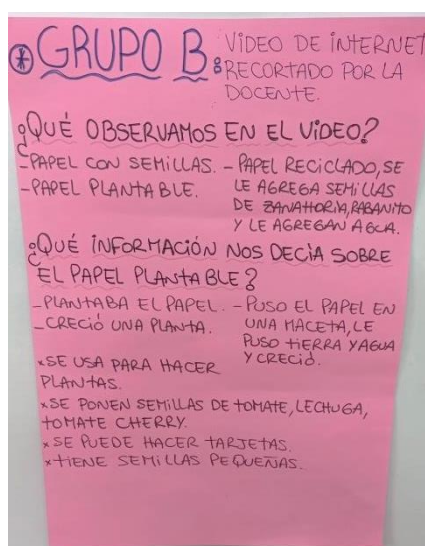 * GRUPO B: VIDEO DE INTERNET
RECORTADO POR LA
DOCENTE.
¿QUÉ OBSERVAMOS EN EL VIDEO?
-PAPEL CON SEMILLAS.
-PAPEL PLANTABLE.
-PAPEL RECICLADO, SE
LE AGREGA SEMILLAS
DE ZANAHORIA, RABANITO
Y LE AGREGAN AGUA.
¿QUÉ INFORMACIÓN NOS DECÍA SOBRE
EL PAPEL PLANTABLE?
-PLANTABA EL PAPEL.
-CRECIÓ UNA PLANTA.
-PUSO EL PAPEL EN
UNA MACETA, LE
PUSO TIERRA Y AGUA
Y CRECIÓ.
*SE USA PARA HACER
PLANTAS.
*SE PONEN SEMILLAS DE TOMATE, LECHUGA,
TOMATE CHERRY.
*SE PUEDE HACER TARJETAS.
*TIENE SEMILLAS PEQUEÑAS.